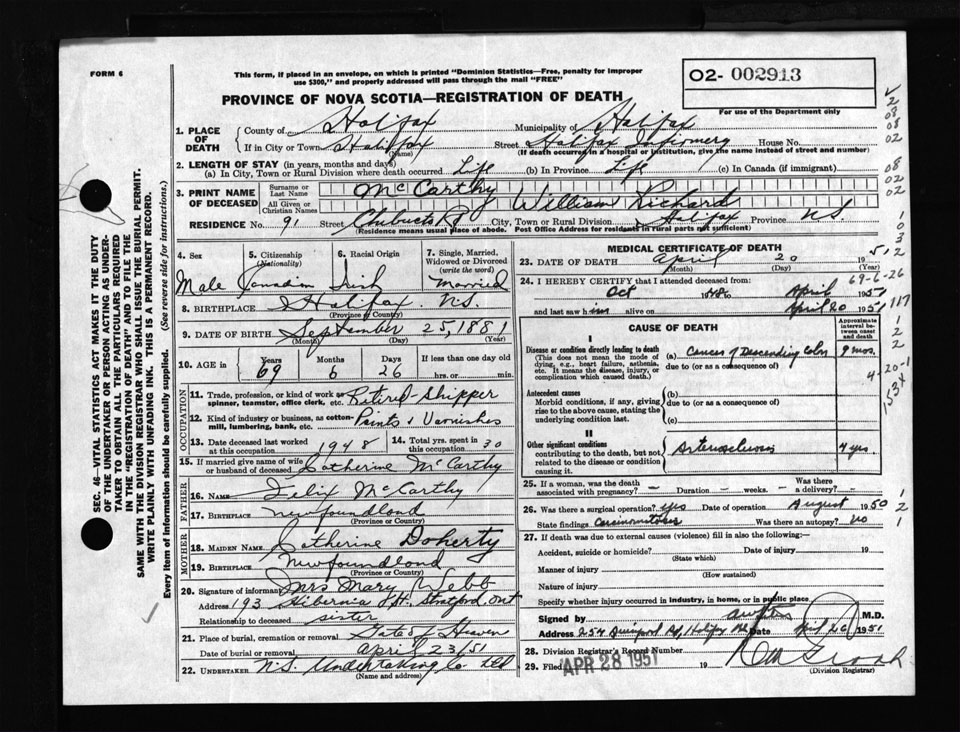 FORM 6
This form, if placed in an envelope, on which is printed "Dominion Statistics—Free, penalty for improper
use $300," and properly addressed will pass through the mail "FREE"
O2- 002913
PROVINCE OF NOVA SCOTIA—REGISTRATION OF DEATH
For use of the Department only
1. PLACE OF DEATH
County of Halifax Municipality of Halifax
If in City or Town Halifax (Name) Street Halifax Infirmary House No.
(If death occurred in a hospital or institution, give the name instead of street and number)
2. LENGTH OF STAY (in years, months and days)
(a) In City, Town or Rural Division where death occurred Life (b) In Province Life (c) In Canada (if immigrant)
3. PRINT NAME OF DECEASED
Surname or Last Name McCarthy
All Given or Christian Names William Richard
RESIDENCE No. 91 Street Chebucto Rd City, Town or Rural Division Halifax Province N.S.
(Residence means usual place of abode. Post Office Address for residents in rural parts not sufficient)
4. Sex
Male
5. Citizenship (Nationality)
Canadian
6. Racial Origin
Irish
7. Single, Married, Widowed or Divorced (write the word)
Married
8. BIRTHPLACE Halifax N.S.
(Province or Country)
9. DATE OF BIRTH September 25, 1881
(Month) (Day) (Year)
10. AGE in Years Months Days If less than one day old
69 6 26 hrs. or min.
OCCUPATION
11. Trade, profession, or kind of work as spinner, teamster, office clerk, etc. Retired - Shipper
12. Kind of industry or business, as cotton-mill, lumbering, bank, etc. Paints & Varnishes
13. Date deceased last worked at this occupation 1948
14. Total yrs. spent in this occupation 30
15. If married give name of wife or husband of deceased Catherine McCarthy
FATHER
16. NAME Felix McCarthy
17. BIRTHPLACE Newfoundland
(Province or Country)
MOTHER
18. MAIDEN NAME Catherine Doherty
19. BIRTHPLACE Newfoundland
(Province or Country)
20. Signature of informant Mrs Mary Webb
Address 193 Hibernia St. Stratford, Ont
Relationship to deceased sister
21. Place of burial, cremation or removal Gate of Heaven
Date of burial or removal April 23/51
22. UNDERTAKER N.S. Undertaking Co Ltd
(Name and address)
MEDICAL CERTIFICATE OF DEATH
23. DATE OF DEATH April 20 1951
(Month) (Day) (Year)
69-6-26
24. I HEREBY CERTIFY that I attended deceased from:
Oct April 1951
and last saw him alive on April 20 1951
CAUSE OF DEATH
Approximate interval between onset and death
I
Disease or condition directly leading to death
(This does not mean the mode of dying, e.g., heart failure, asthenia, etc. It means the disease, injury, or complication which caused death.
(a) Cancer of Descending Colon 9 mos.
due to (or as a consequence of)
Antecedent causes
Morbid conditions, if any, giving rise to the above cause, stating the underlying condition last.
(b)
due to (or as a consequence of)
(c)
II
Other significant conditions
contributing to the death, but not related to the disease or condition causing it.
Arteriosclerosis 4 yrs.
25. If a woman, was the death associated with pregnancy? — Duration — weeks. — Was there a delivery? —
26. Was there a surgical operation? yes Date of operation August 1950
State findings Carcinomatosis Was there an autopsy? no
27. If death was due to external causes (violence) fill in also the following:—
Accident, suicide or homicide? Date of injury 19
(State which)
Manner of injury
(How sustained)
Nature of injury
Specify whether injury occurred in industry, in home, or in public place
Signed by M.D.
Address 254 Quinpool Rd, Halifax NS Date April 26 1951
28. Division Registrar's Record Number
29. Filed APR 28 1951 19
(Division Registrar)
SEC. 46—VITAL STATISTICS ACT MAKES IT THE DUTY
OF THE UNDERTAKER OR PERSON ACTING AS UNDER-
TAKER TO OBTAIN ALL THE PARTICULARS REQUIRED
IN THE "REGISTRATION OF DEATH" AND TO FILE THE
SAME WITH THE DIVISION REGISTRAR WHO SHALL ISSUE THE BURIAL PERMIT.
WRITE PLAINLY WITH UNFADING INK. THIS IS A PERMANENT RECORD.
Every item of information should be carefully supplied. (See reverse side for instructions.)
2
08
08
02
08
02
02
1
0
3
2
117
1
2
2
4-20-1
153X
1
2
1